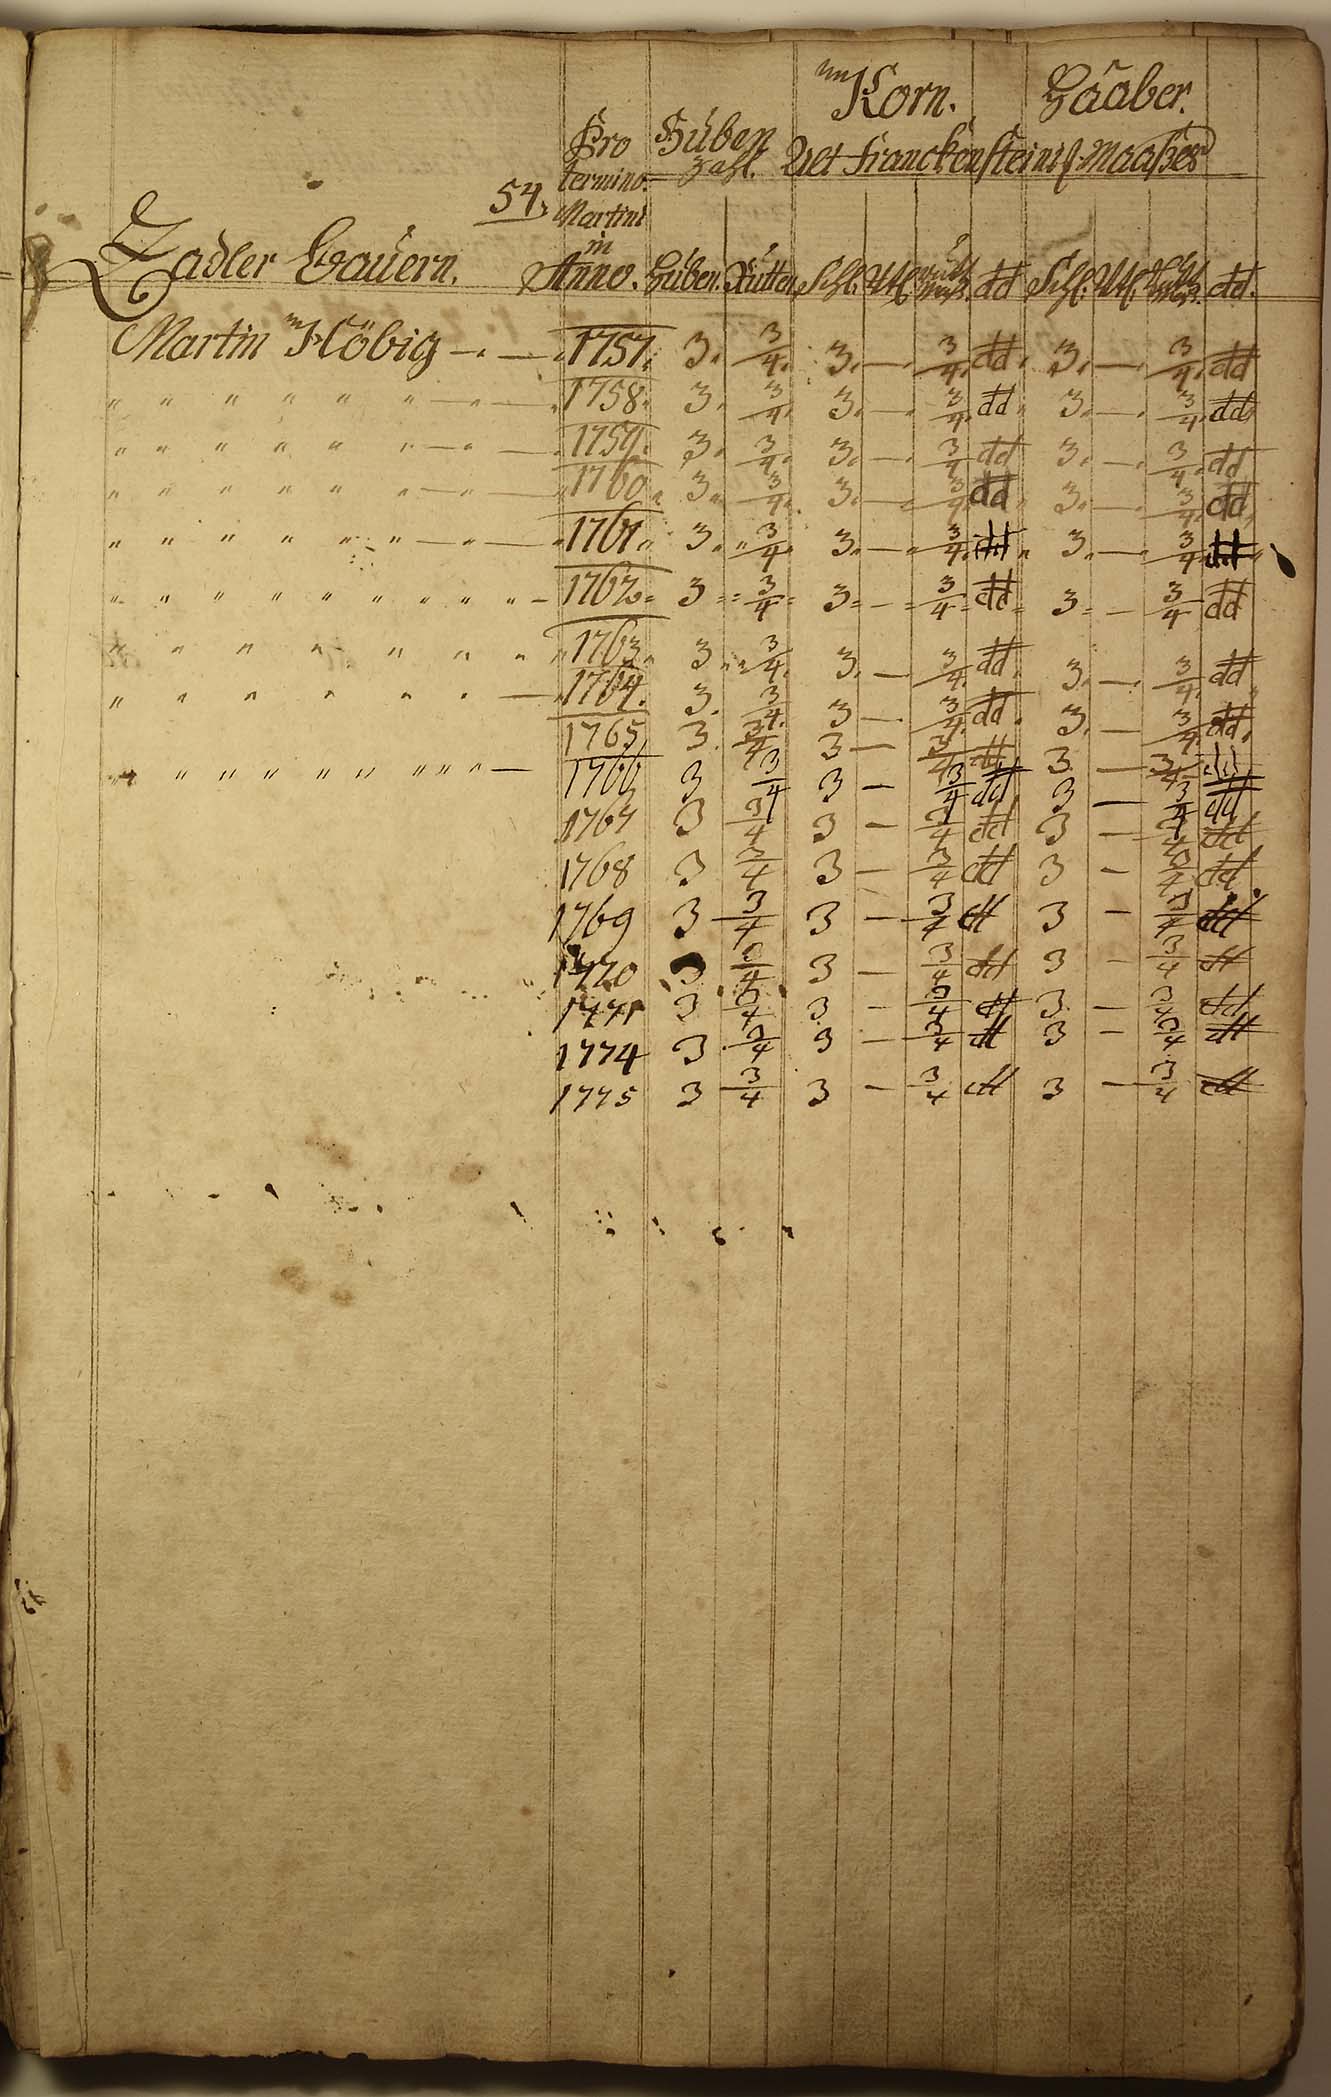 Korn. Haaber.
Pro Huben
termino. Zahl. Alt Franckensteinis. Maaßes
54, Martini
in
Zadler Bauern. Anno. Huben. Rutten Schl. Vtl. dd Schl. Vtl. dd.
Martin Klöbig — . — . 1757. 3. 3/4. 3. — . 3/4. dd. 3. — . 3/4. dd
" " " " " " — " — . 1758. 3. 3/4. 3. — . 3/4. dd. 3. — . 3/4. dd
" " " " " " — " — . 1759. 3. 3/4. 3. — . 3/4 dd 3. — . 3/4. dd
" " " " " " — " — " 1760. 3. 3/4. 3. — . 3/4 dd 3. — . 3/4. dd
" " " " " " — " — " 1761. 3. " 3/4. 3. — " 3/4. dd " 3. — . 3/4 dd "
" " " " " " " " " " — 1762. 3 = 3/4 = 3 = — = 3/4 = dd = 3 = — 3/4 dd
" " " " " " " " 1763. 3. " 3/4. 3. — 3/4. dd. 3. — . 3/4. dd
" " " " " " " — " 1764. 3. 3/4. 3 — . 3/4. dd. 3. — 3/4. dd.
1765 3. 3/4 3 — 3/4 dd 3. — 3/4 dd
" " " " " " " " " " — 1766 3 3/4 3 — 3/4 dd 3 — 3/4 dd
1767 3 3/4 3 — 3/4 dd 3 — 3/4 dd
1768 3 3/4 3 — 3/4 dd 3 — 3/4 dd
1769 3 3/4 3 — 3/4 dd 3 — 3/4 dd
1770 3 3/4 3 — 3/4 dd 3 — 3/4 dd
1771 3 3/4 3 — 3/4 dd 3 — 3/4 dd
1774 3 3/4 3 — 3/4 dd 3 — 3/4 dd
1775 3 3/4 3 — 3/4 dd 3 — 3/4 dd